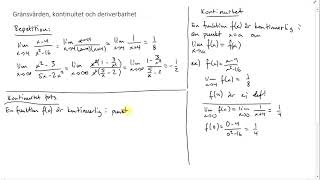 Gränsvärden, kontinuitet och deriverbarhet
Repetition:
lim x→4 x-4/x²-16 = lim x→4 (x-4)/(x+4)(x-4) = lim x→4 1/x+4 = 1/8
lim x→∞ x²-3/5x-2x² = lim x→∞ x²(1-3/x²)/x²(5/x-2) = lim x→∞ 1-3/x²/5/x-2 = -1/2
Kontinuitet forts.
En funktion f(x) är kontinuerlig i punkt
Kontinuitet
En funktion f(x) är kontinuerlig i en
punkt x=a om
lim x→a f(x) = f(a)
ex) f(x) = x-4/x²-16
f(4) är ej def!
lim x→0 f(x) = lim x→0 1/x+4 = 1/4
f(0) = 0-4/0²-16 = 1/4